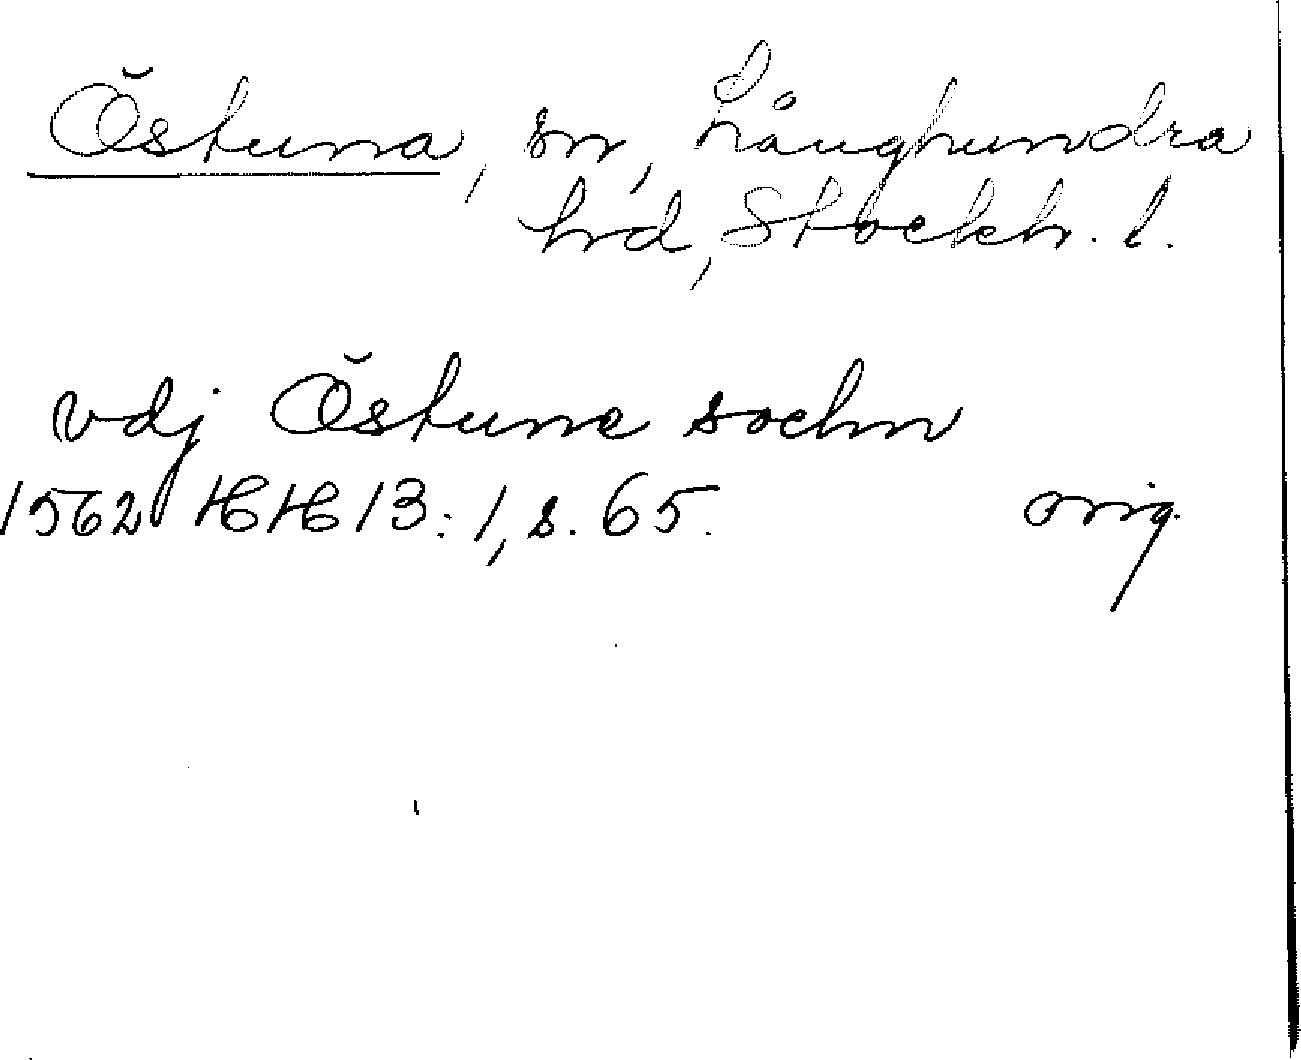 Östuna, sn, Långhundra
hrd, Stockh. l.
vdj Östune sochn
1562 HH 13:1, s. 65. orig.